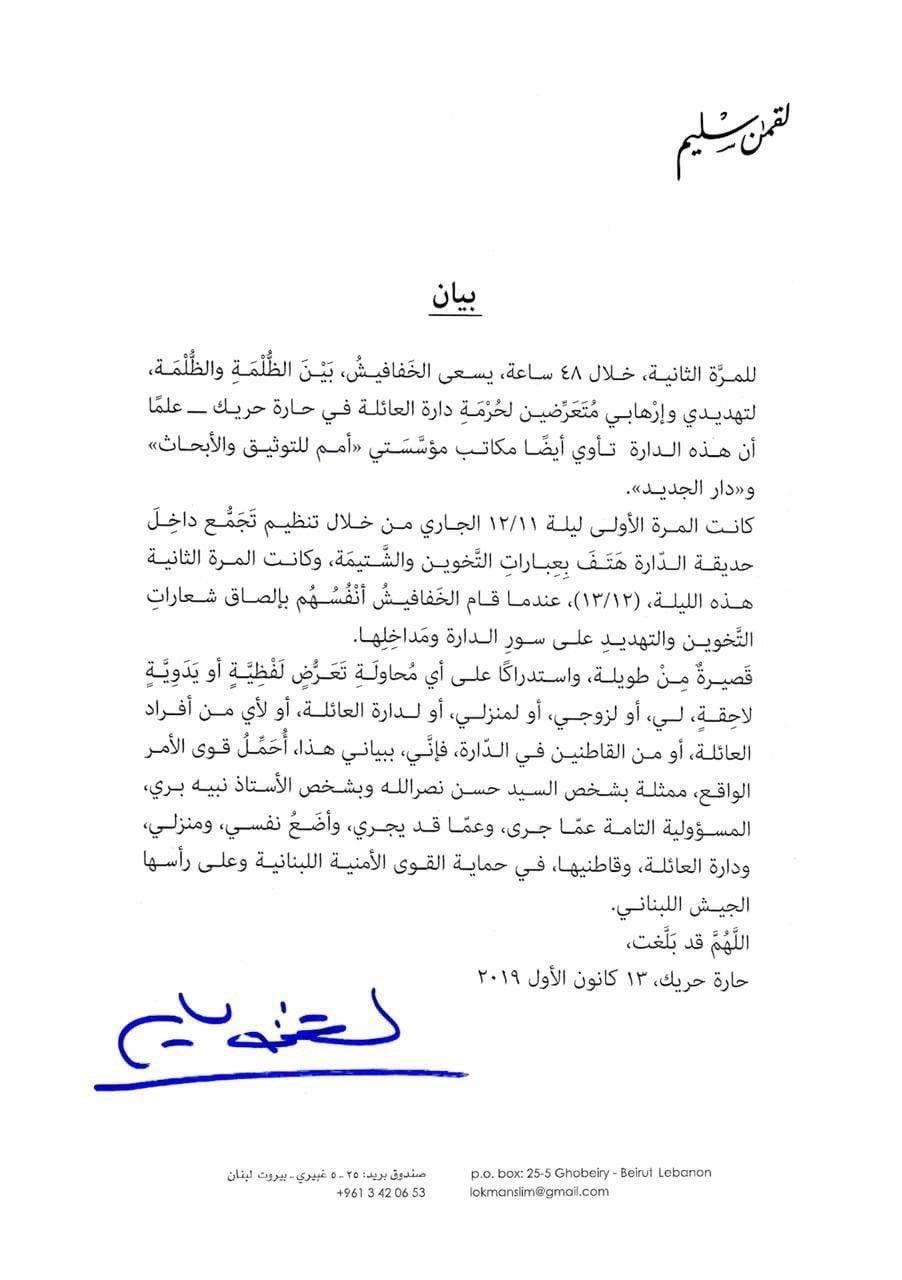 لقمن سليم
بيان
للمرَّة الثانية، خلال ٤٨ ساعة، يسعى الخَفافيشُ، بَيْنَ الظُّلْمَةِ والظُّلْمَة،
لتهديدي وإرْهابي مُتَعَرِّضين لحُرْمَةِ دارة العائلة في حارة حريك ــ علمًا
أن هذه الدارة تأوي أيضًا مكاتب مؤسَّسَتي «أمم للتوثيق والأبحاث»
و«دار الجديد».
كانت المرة الأولى ليلة ١٢/١١ الجاري من خلال تنظيم تَجَمُّع داخِلَ
حديقة الدّارة هَتَفَ بِعِباراتِ التَّخوين والشَّتيمَة، وكانت المرة الثانية
هذه الليلة، (١٣/١٢)، عندما قام الخَفافيشُ أنْفُسُهُم بإلصاق شعاراتِ
التَّخوين والتهديدِ على سورِ الدارة ومَداخِلِها.
قَصيرةٌ مِنْ طويلة، واستدراكًا على أي مُحاولَةِ تَعَرُّضٍ لَفْظِيَّةٍ أو يَدَوِيَّةٍ
لاحِقةٍ، لي، أو لزوجي، أو لمنزلي، أو لدارة العائلة، أو لأي من أفراد
العائلة، أو من القاطنين في الدّارة، فإنَّي، ببياني هذا، أُحَمِّلُ قوى الأمر
الواقع، ممثلة بشخص السيد حسن نصرالله وبشخص الأستاذ نبيه بري،
المسؤولية التامة عمّا جرى، وعمّا قد يجري، وأضَعُ نفسي، ومنزلي،
ودارة العائلة، وقاطنيها، في حماية القوى الأمنية اللبنانية وعلى رأسها
الجيش اللبناني.
اللَّهُمَّ قد بَلَّغت،
حارة حريك، ١٣ كانون الأول ٢٠١٩
لقمن سليم
صندوق بريد: ٢٥ ـ ٥ غبيري ـ بيروت لبنان
+961 3 42 06 53
p.o. box: 25-5 Ghobeiry - Beirut Lebanon
lokmanslim@gmail.com